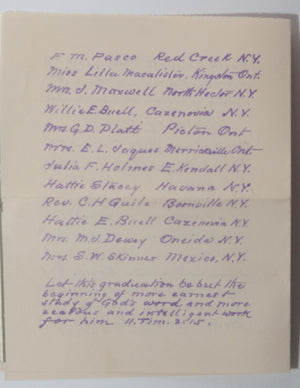 F. M. Pasco Red Creek N.Y.
Miss Lilla Macalister, Kingston Ont.
Mrs. J. Maxwell North Hector N.Y.
Willie E. Buell, Cazenovia N.Y.
Mrs. G. D. Platt Picton Ont
Mrs. E. L. Jaques Merrickville Ont
Julia F. Holmes E. Kendall N.Y.
Hattie Stacey Havana N.Y.
Rev. C. H. Guile Boonville N.Y.
Hattie E. Buell Cazenovia N.Y.
Mrs. M. J. Dewey Oneida N.Y.
Mrs. S. W. Skinner Mexico, N.Y.
Let this graduation be but the
beginning of more earnest
study of God's word and more
zealous and intelligent work
for him II. Tim. 2:15.